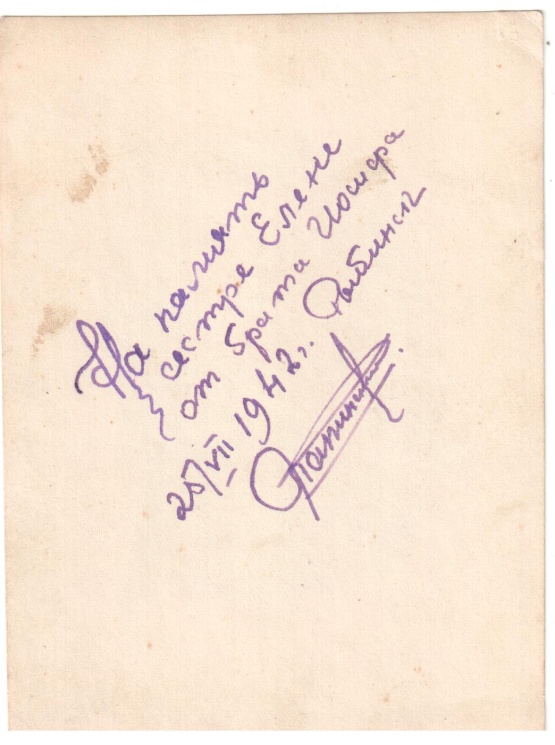 На память
сестре Елене
от брата Иосифа
25/VII 1942 г. Рыбинск